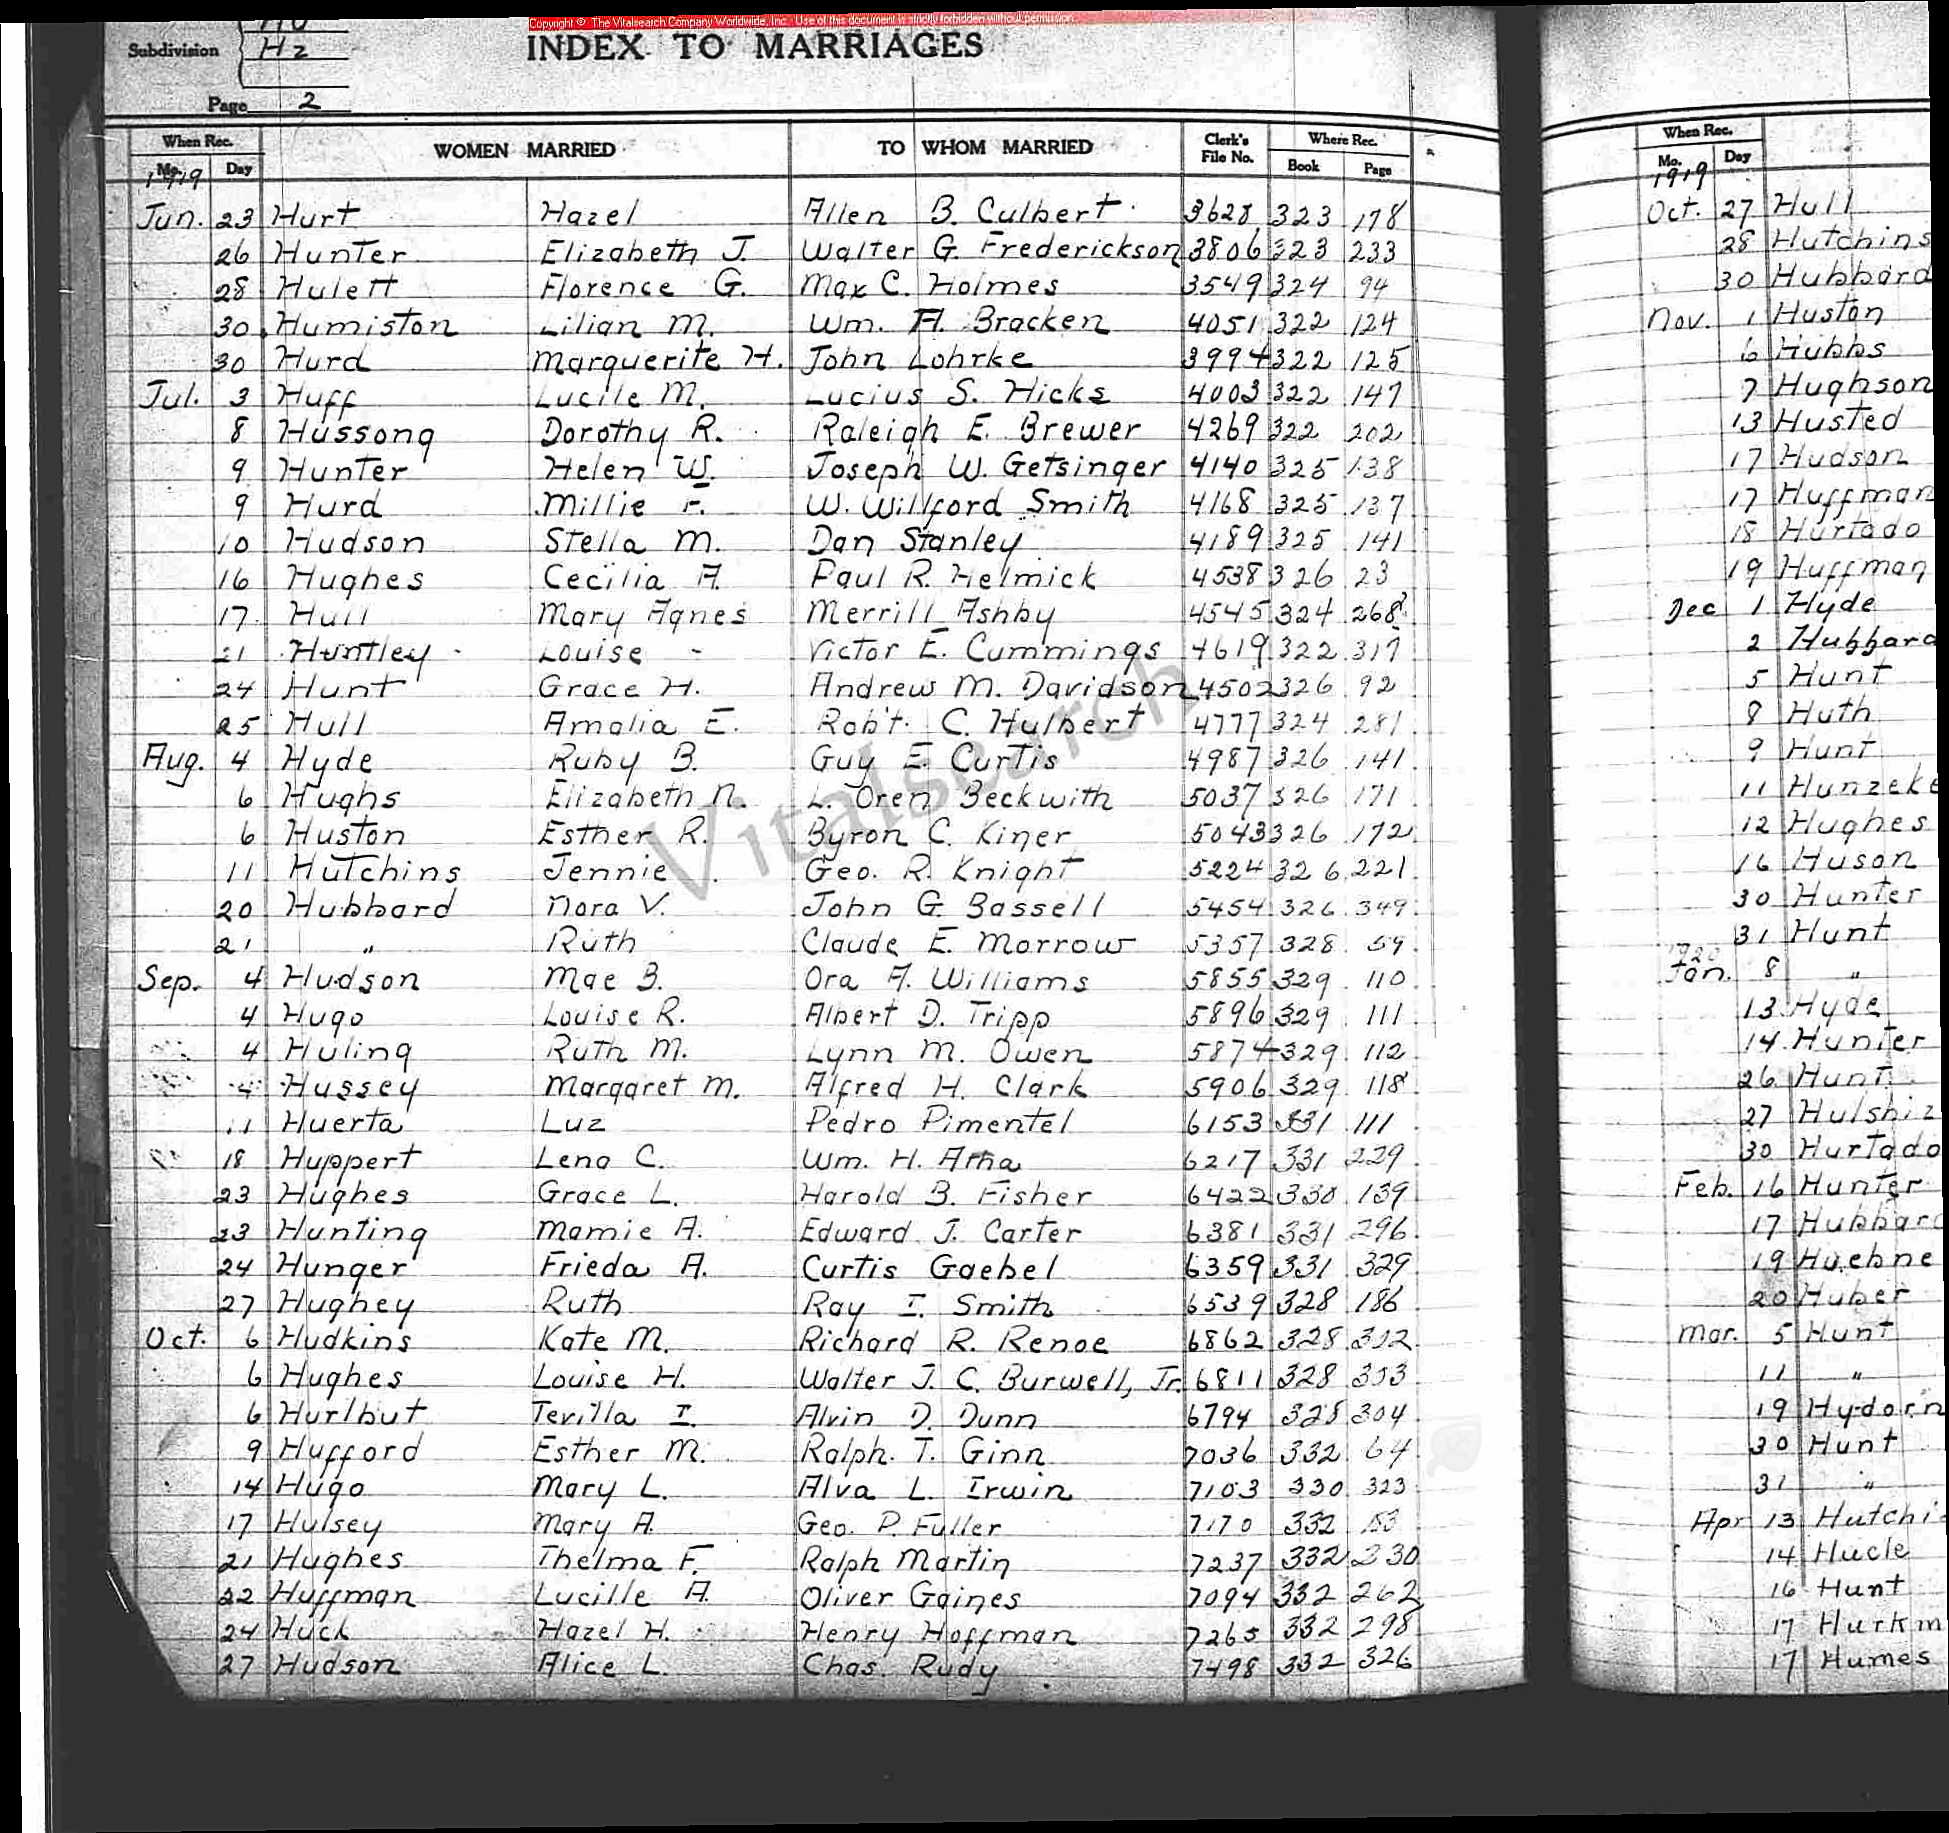 Copyright © The Vitalsearch Company Worldwide, Inc. Use of this document is strictly forbidden without permission.
Subdivision Hu
Hz
INDEX TO MARRIAGES
Page 2
When Rec. WOMEN MARRIED TO WHOM MARRIED Clerk's File No. Where Rec.
Mo. Day Book Page
1919
Jun. 23 Hurt Hazel Allen B. Culbert 3628 323 178
26 Hunter Elizabeth J. Walter G. Frederickson 3806 323 233
28 Hulett Florence G. Max C. Holmes 3549 324 94
30 Humiston Lilian M. Wm. A. Bracken 4051 322 124
30 Hurd Marguerite H. John Lohrke 3994 322 125
Jul. 3 Huff Lucile M. Lucius S. Hicks 4003 322 147
8 Hussong Dorothy R. Raleigh E. Brewer 4269 322 202
9 Hunter Helen W. Joseph W. Getsinger 4140 325 138
9 Hurd Millie F. W. Willford Smith 4168 325 137
10 Hudson Stella M. Dan Stanley 4189 325 141
16 Hughes Cecilia A. Paul R. Helmick 4538 326 23
17 Hull Mary Agnes Merrill Ashby 4545 324 268
21 Huntley Louise - Victor E. Cummings 4619 322 317
24 Hunt Grace H. Andrew M. Davidson 4502 326 92
25 Hull Amalia E. Rob't. C. Hulbert 4777 324 281
Aug. 4 Hyde Ruby B. Guy E. Curtis 4987 326 141
6 Hughs Elizabeth N. L. Oren Beckwith 5037 326 171
6 Huston Esther R. Byron C. Kiner 5043 326 172
11 Hutchins Jennie Geo. R. Knight 5224 326 221
20 Hubbard Nora V. John G. Bassell 5454 326 349
21 " Ruth Claude E. Morrow 5357 328 59
Sep. 4 Hudson Mae B. Ora A. Williams 5855 329 110
4 Hugo Louise R. Albert D. Tripp 5896 329 111
4 Huling Ruth M. Lynn M. Owen 5874 329 112
4 Hussey Margaret M. Alfred H. Clark 5906 329 118
11 Huerta Luz Pedro Pimentel 6153 331 111
18 Huppert Lena C. Wm. H. Atha 6217 331 229
23 Hughes Grace L. Harold B. Fisher 6422 330 139
23 Hunting Mamie A. Edward J. Carter 6381 331 296
24 Hunger Frieda A. Curtis Gaebel 6359 331 329
27 Hughey Ruth Ray I. Smith 6539 328 186
Oct. 6 Hudkins Kate M. Richard R. Renoe 6862 328 302
6 Hughes Louise H. Walter J. C. Burwell, Jr. 6811 328 303
6 Hurlbut Tevilla I. Alvin D. Dunn 6794 328 304
9 Hufford Esther M. Ralph. T. Ginn 7036 332 64
14 Hugo Mary L. Alva L. Irwin 7103 330 323
17 Hulsey Mary A. Geo. P. Fuller 7170 332
21 Hughes Thelma F. Ralph Martin 7237 332 230
22 Huffman Lucille A. Oliver Gaines 7094 332 262
24 Huck Hazel H. Henry Hoffman 7265 332 298
27 Hudson Alice L. Chas. Rudy 7498 332 326
Vitalsearch
When Rec.
Mo. Day
1919
Oct. 27 Hull
28 Hutchins
30 Hubbard
Nov. 1 Huston
6 Hubbs
7 Hughson
13 Husted
17 Hudson
17 Huffman
18 Hurtado
19 Huffman
Dec 1 Hyde
2 Hubbard
5 Hunt
8 Huth
9 Hunt
11 Hunzeke
12 Hughes
16 Huson
30 Hunter
31 Hunt
1920
Jan. 8 "
13 Hyde
14 Hunter
26 Hunt
27 Hulshiz
30 Hurtado
Feb. 16 Hunter
17 Hubbard
19 Huebne
20 Huber
Mar. 5 Hunt
11 "
19 Hydorn
30 Hunt
31 "
Apr 13 Hutchi
14 Hucle
16 Hunt
17 Hurkm
17 Humes